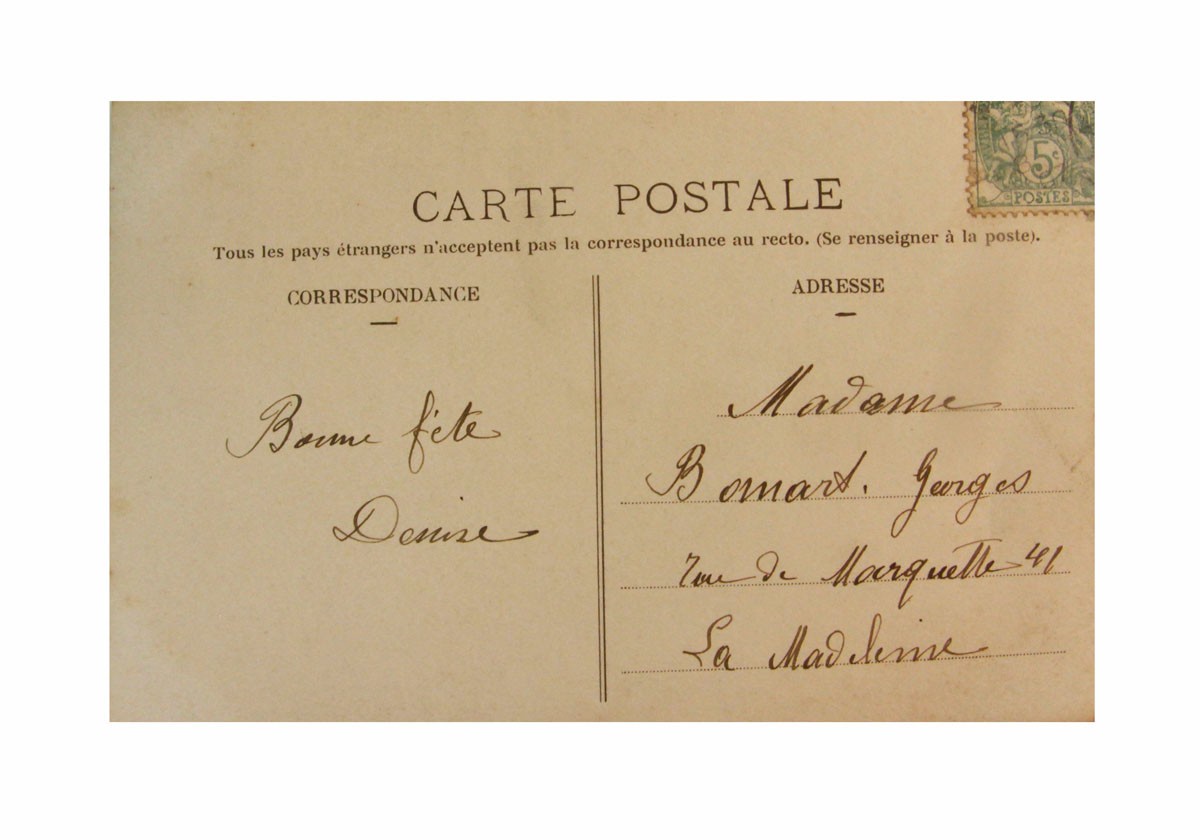 5c
POSTES
CARTE POSTALE
Tous les pays étrangers n'acceptent pas la correspondance au recto. (Se renseigner à la poste).
CORRESPONDANCE
Bonne fête
Denise
ADRESSE
Madame
Bomart. Georges
rue de Marquette 41
La Madeleine